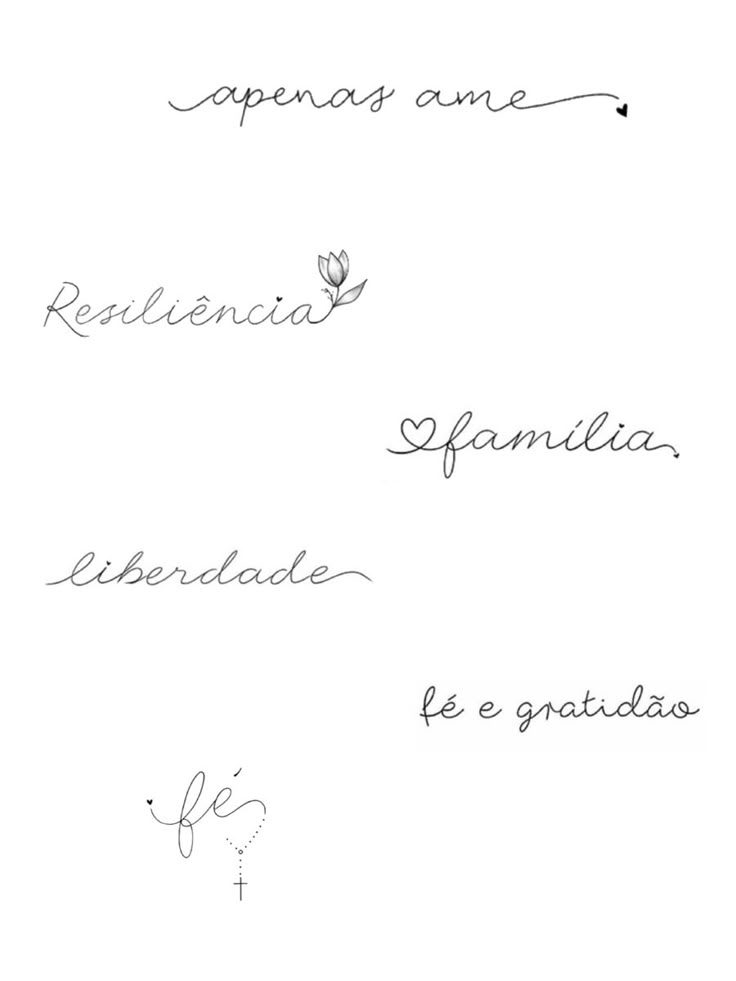 apenas ame
Resiliência
família
liberdade
fé e gratidão
fé